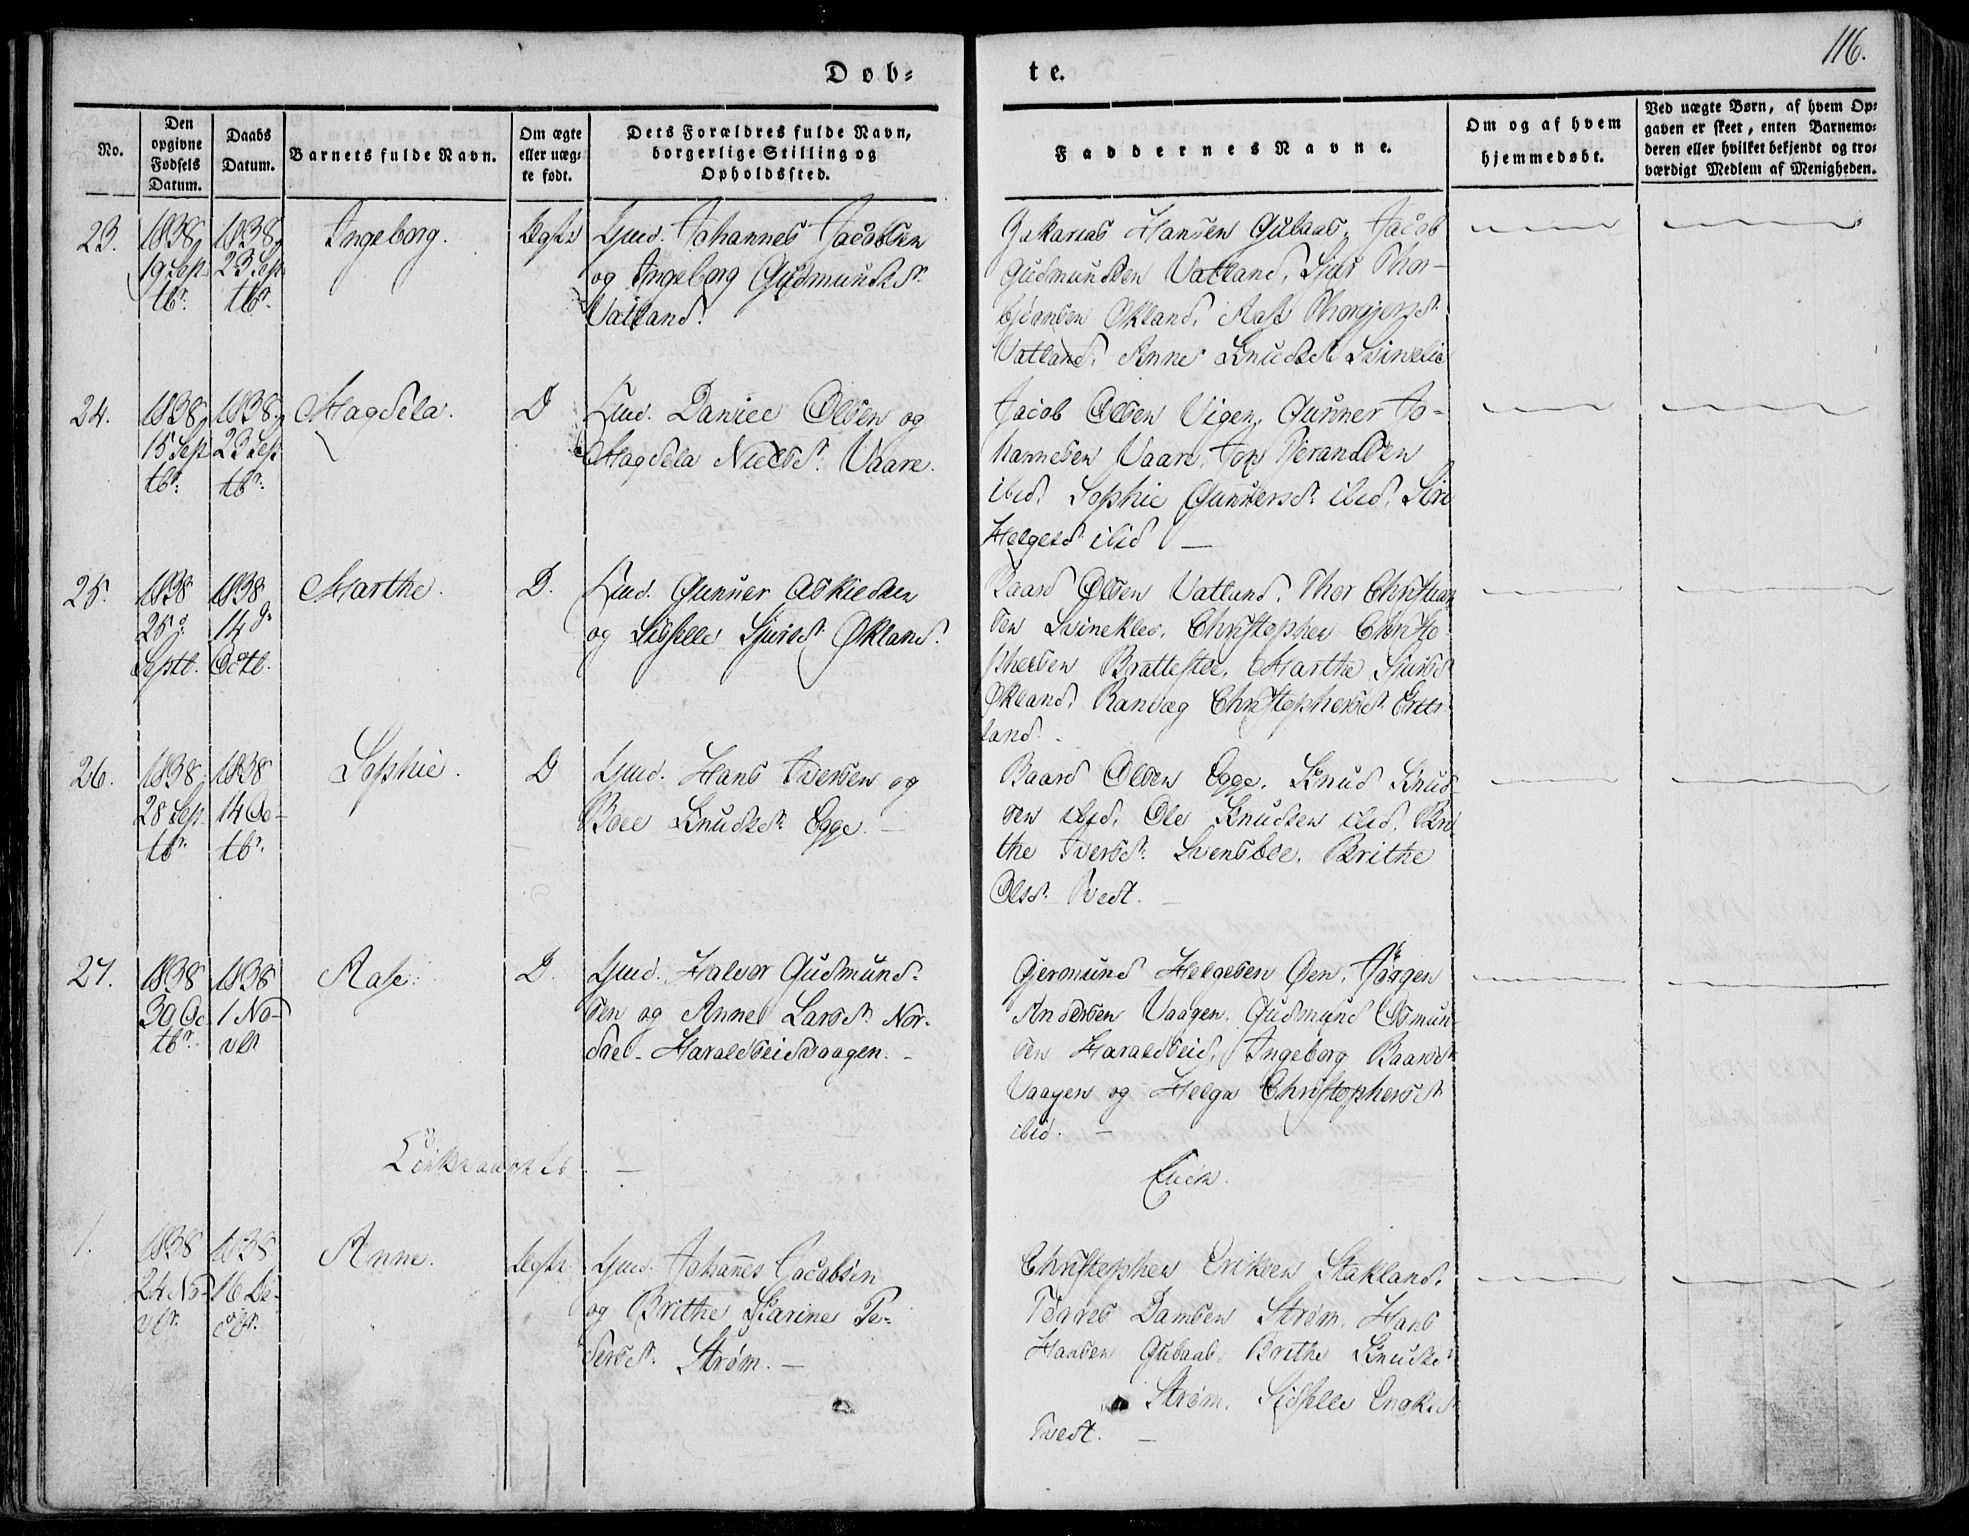 116.
Døb-
te.
No.
Den opgivne Fødsels Datum.
Daabs Datum.
Barnets fulde Navn.
Om ægte eller uægte født.
Dets Forældres fulde Navn, borgerlige Stilling og Opholdssted.
Faddernes Navne.
Om og af hvem hjemmedøbt.
Ved uægte Børn, af hvem Op-
gaven er skeet, enten Barnemo-
deren eller hvilket bekjendt og tro-
værdigt Medlem af Menigheden.
23.
1838
19 Sep
tbr.
1838
23 Sep
tbr.
Ingeborg.
Ægte
Gmd. Johannes Jacobsen
og Ingeborg Gudmundsdr
Vatland.
Zakarias Hansen Gulaas, Jacob
Gudmundsen Vatland, Thor-
bjørnsen Økland, Aase
Vatland, Anne Knudsdr
24.
1838
15 Sep
tbr.
1838
23 Sep
tbr.
Magdela.
D
Gmd. Daniel Olsen og
Magdela Nielsdr. Vaare.
Jacob Olsen Vigen, Gunner Jo-
hannesen Vaare,
ibid, Sophie Gunnersdr. ibid, Siri
Helgesdr ibid —
25.
1838
25de
Septb.
1838
14de
Octb.
Marthe.
D.
Gmd. Gunner Askieldsen
og Sidselle Sjursdr. Økland.
Baard Olsen Vatland, Thor Christian
sen Christopher Christo-
phersen Bratteste, Marthe Sjursdr
Økland, Ranvæg Christophersdr.
land.
26.
1838
28 Sep
tbr.
1838
14 Oc-
tbr.
Sophie.
D
Gmd. Hans Iversen og
Boel Knudsdr. Egge. —
Baard Olsen Egge, Knud Knud-
sen ibid, Ole Knudsen ibid, Bri-
the Iversdr. Svensboe, Brithe
Olsdr. Tvedt. —
27.
1838
30 Oc
tbr.
1838
1 No-
vbr
Aase.
D.
Gmd. Halvor Gudmund-
sen og Anne Larsdr. Nor-
dre Haraldseidvaagen. —
Gjermund Helgesen Øen, Jørgen
Andersen Vaagen, Gudmund Osmun-
sen Haraldseid, Ingeborg Baardsdr
Vaagen og Helga Christophersdr
ibid. —
1.
1838
24 No-
vbr.
1838
16 De-
cbr.
Anne.
Ægte
Gmd. Johannes Jacobsen
og Brithe Karine Pe-
dersdr. Strøm. —
Christopher Eriksen Stakland,
Strøm, Hans
Hansen Gulaas, Brithe Knudsdr
Strøm, Sidselle
Tvedt. —